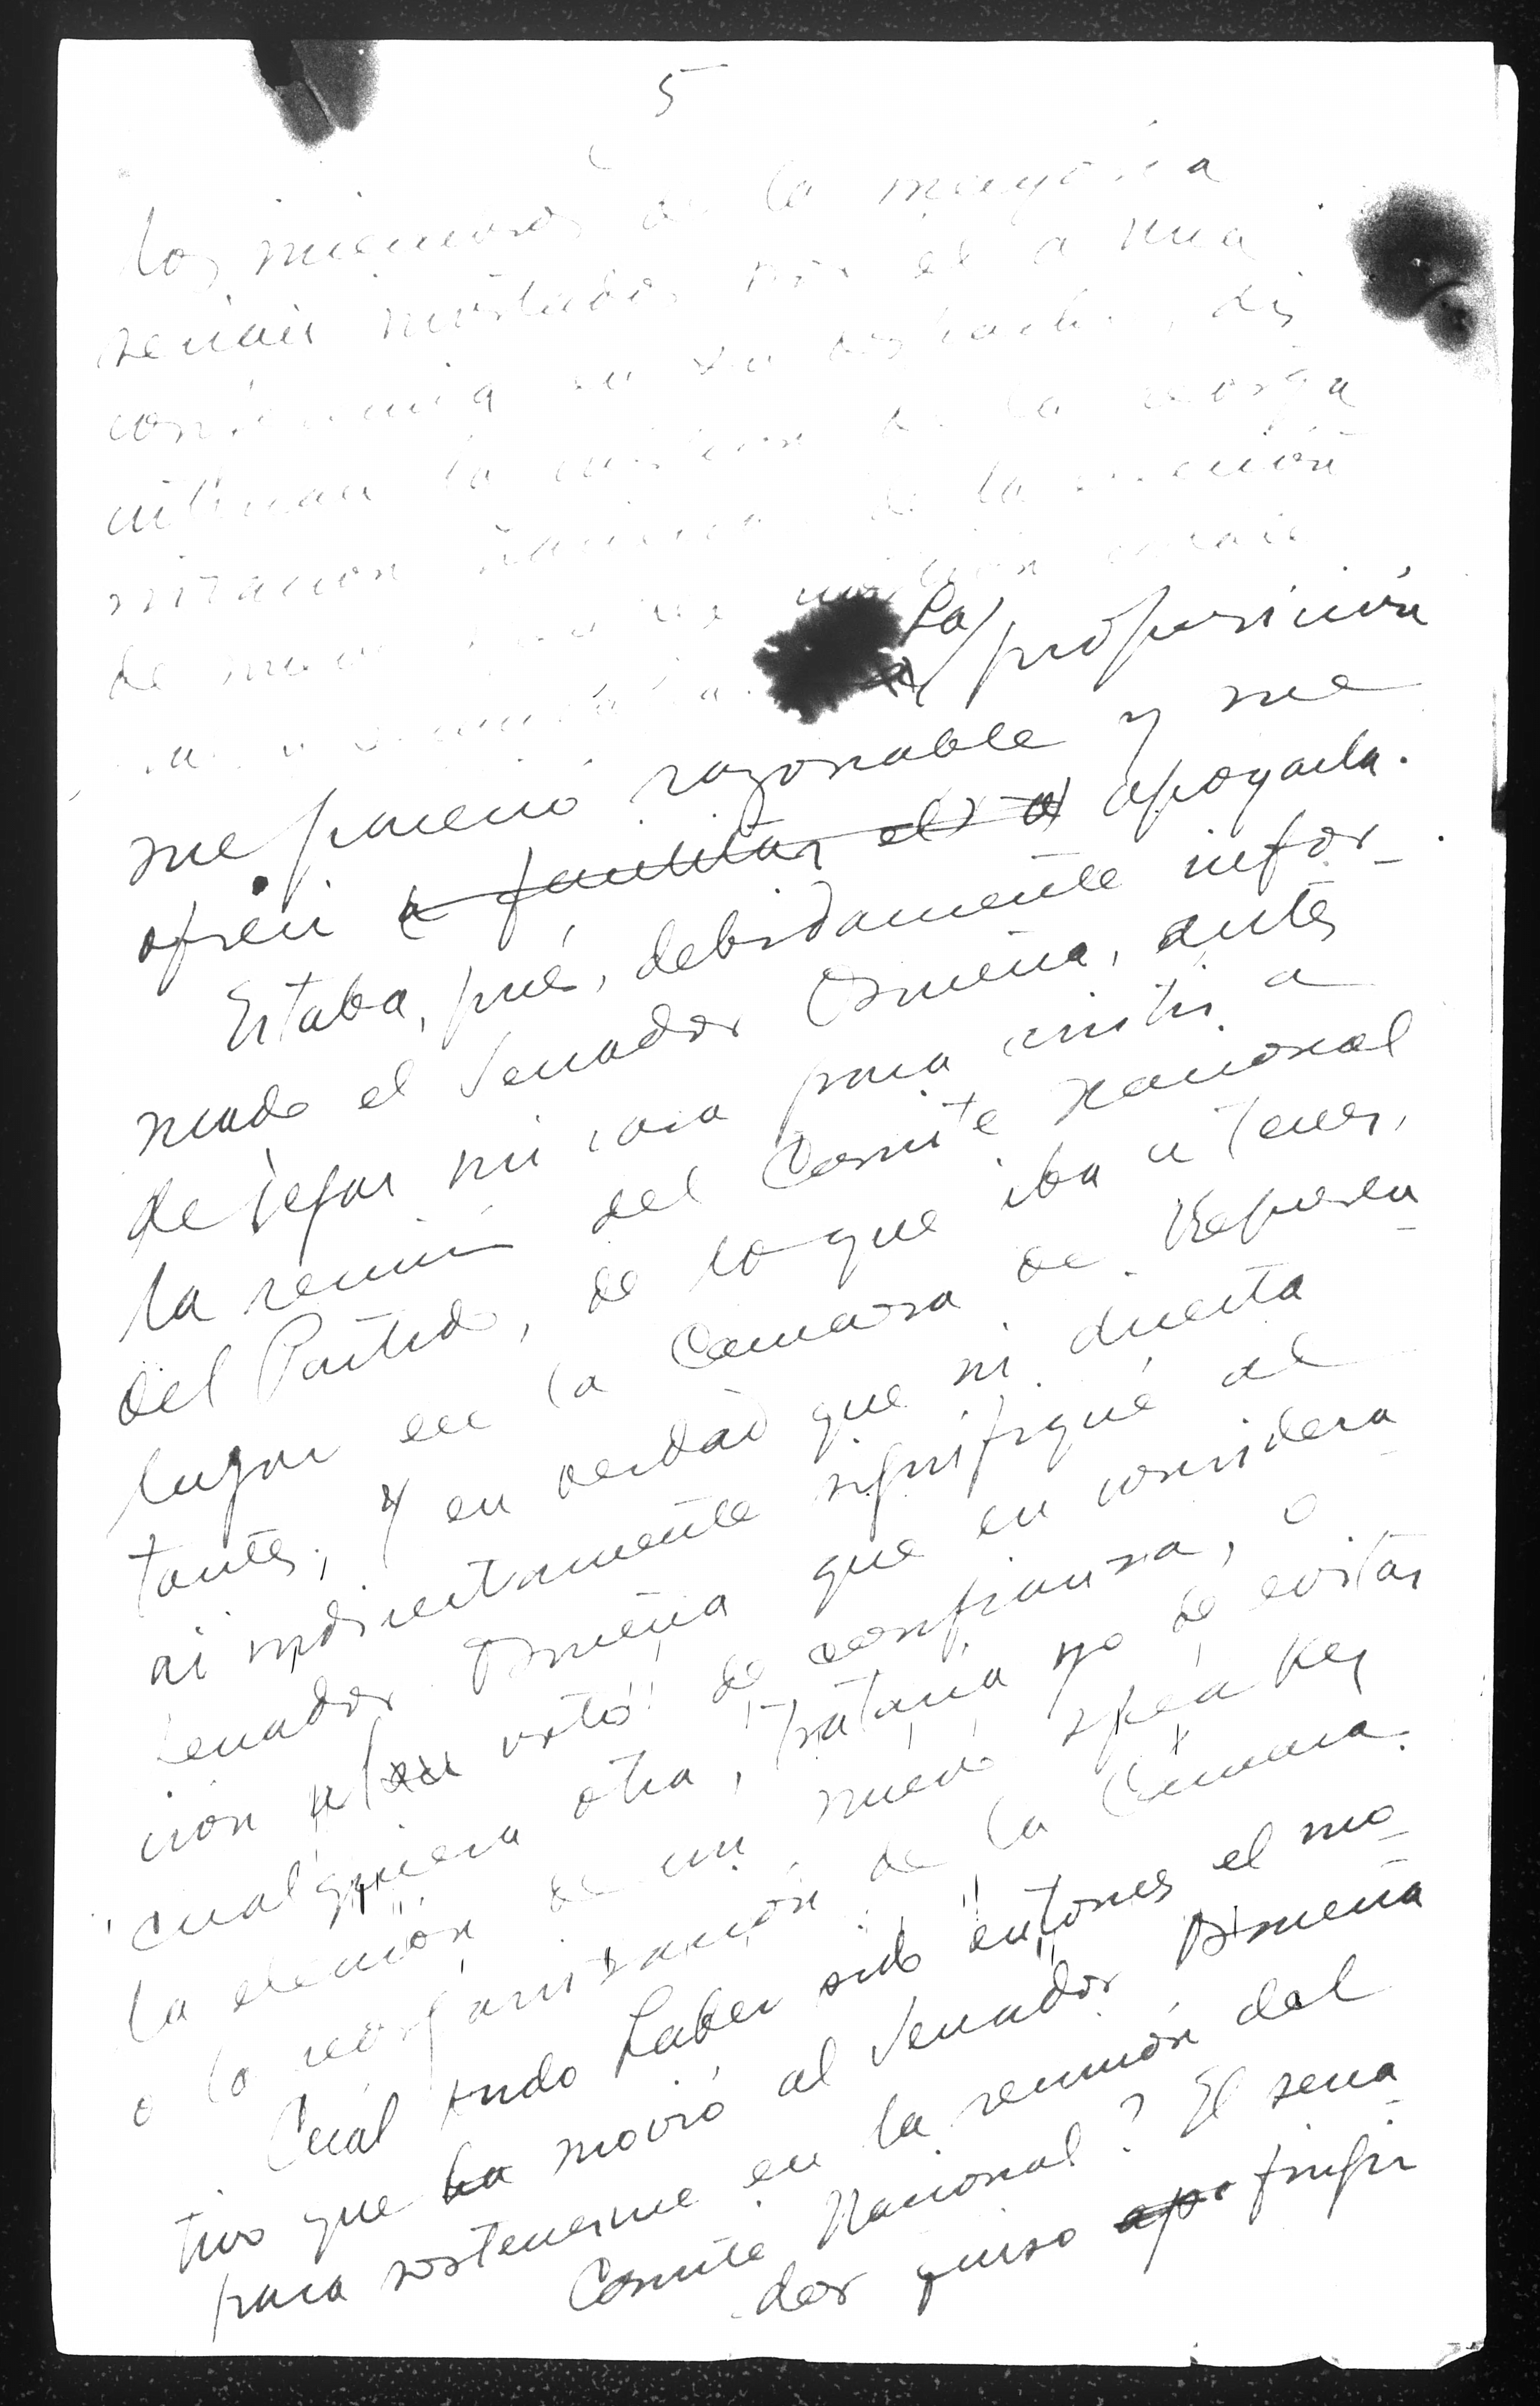 5
los miembros de la mayoria
serian invitados por él a una
conferencia en su despacho, dis-
cutirian la cuestion de la reorga
nización de la elección
de nuevo
La proposición
me pareció razonable y me
ofreci a facilitar el apoyarla.
Estaba, pués, debidamente infor-
mado el Senador Osmeña, antes
de dejar mi casa para asistir a
la reunión del Comite Nacional
del Partido, de lo que iba a tener,
lugar en la Camara de Represen-
tantes, y en verdad que ni directa
ni indirectamente signifiqué al
Senador Osmeña que en considera-
ción al su voto de confianza, o
cualquiera otra, trataria yo de evitar
la elección de un nuevo speaker
o la reorganización de la Cámara.
Cuál pudo haber sido entonces el mo-
tivo que ha movió al Senador Osmeña
para sostenerme en la reunión del
Comite Nacional? El sena-
dor quiso apo fingir